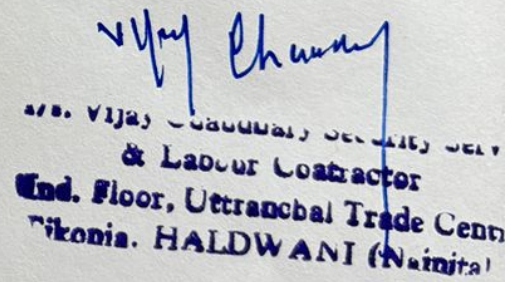 Vijay Chaudhary
M/s. Vijay Chaudhary Security Serv
& Labour Coatractor
IInd. Floor, Uttranchal Trade Cent
Tikonia. HALDWANI (Nainital